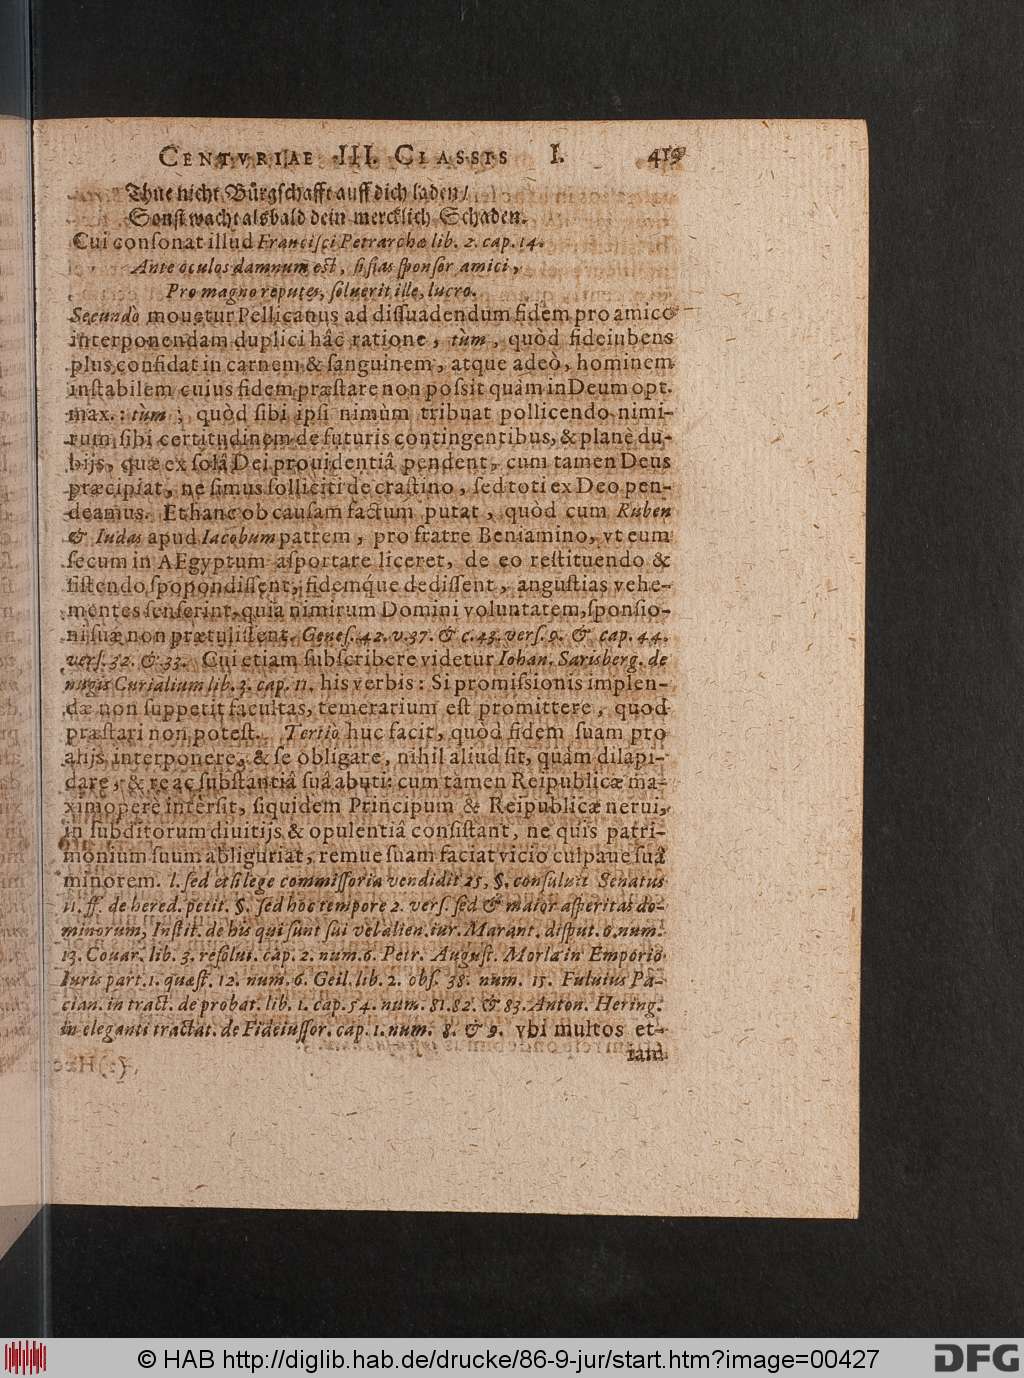 CENTVRIAE III. CLASSIS I. 419
Thue nicht Bürgschafft auff dich laden/
Sonst wacht alsbald dein mercklich Schaden.
Cui consonat illud Francisci Petrarchæ lib. 2. cap. 14.
Ante oculos damnum est, si sias sponsor amici,
Pro magno reputes, soluerit ille, lucro.
Secundò mouetur Pellicanus ad dissuadendum fidem pro amico
interponendam duplici hâc ratione, tùm, quòd fideiubens
plus confidat in carnem & sanguinem, atque adeò, hominem
instabilem cuius fidem præstare non possit quàm in Deum opt.
max.: tùm, quòd sibi ipsi nimùm tribuat pollicendo nimi-
rum sibi certitudinem de futuris contingentibus, & planè du-
bijs, quæ ex solâ Dei prouidentiâ pendent, cum tamen Deus
præcipiat, ne simus solliciti de crastino, sed toti ex Deo pen-
deamus. Et hanc ob causam factum putat, quòd cum Ruben
& Iudas apud Iacobum patrem, pro fratre Beniamino, vt eum
secum in AEgyptum asportare liceret, de eo restituendo &
sistendo spopondissent, fidemq́ue dedissent, angustias vehe-
mentes senserint, quia nimirum Domini voluntatem, sponsio-
ni suæ non prætulissent. Genes. 42. v. 37. & c. 43. vers. 9. & cap. 44.
vers. 32. & 33. Cui etiam subscribere videtur Iohan. Sarisberg. de
nugis Curialium lib. 3. cap. 11. his verbis: Si promissionis implen-
dæ non suppetit facultas, temerarium est promittere, quod
præstari non potest. Tertiò huc facit, quòd fidem suam pro
alijs interponere, & se obligare, nihil aliud sit, quàm dilapi-
dare, & re ac substantiâ suâ abuti: cum tamen Reipublicæ ma-
ximopere intersit, siquidem Principum & Reipublicæ nerui,
in subditorum diuitijs & opulentiâ consistant, ne quis patri-
monium suum abliguriat, remue suam faciat vicio culpaue suâ
minorem. l. sed etsi lege commissoria vendidit 25, §. consuluit Senatus
11. ff. de hered. petit. §. sed hoc tempore 2. vers. sed & maior asperitas do-
minorum, Instit. de his qui sunt sui vel alien. iur. Marant. disput. 6. num.
13. Couar. lib. 3. resolut. cap. 2. num. 6. Petr. August. Morla in Emporio
Iuris part. 1. quæst. 12. num. 6. Geil. lib. 2. obs. 38. num. 15. Fuluius Pa-
cian. in tract. de probat. lib. 1. cap. 54. num. 81. 82. & 83. Anton. Hering.
in eleganti tractat. de Fideiussor. cap. 1. num. 8. & 9. vbi multos et-
iam
© HAB http://diglib.hab.de/drucke/86-9-jur/start.htm?image=00427
DFG